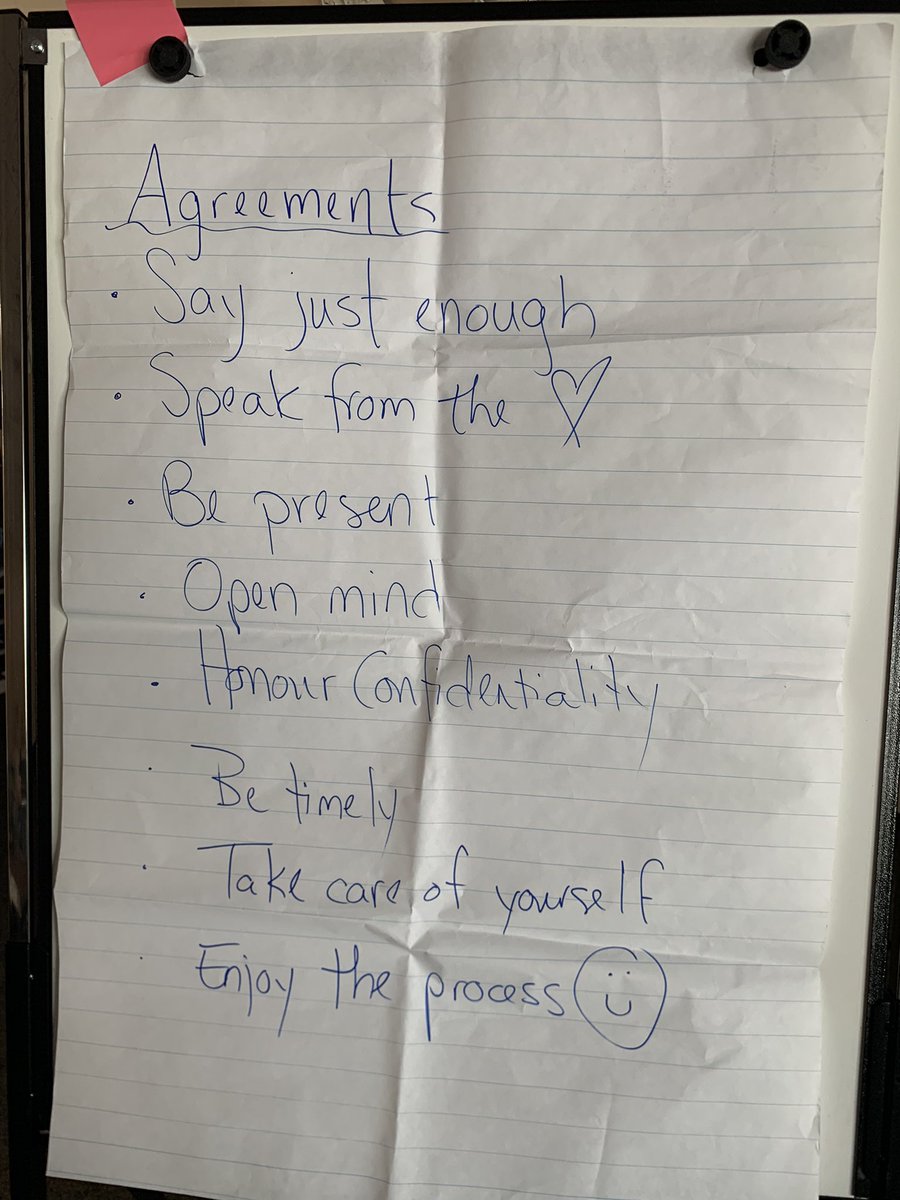 Agreements
· Say just enough
· Speak from the ♡
· Be present
· Open mind
· Honour Confidentiality
· Be timely
· Take care of yourself
· Enjoy the process ☺